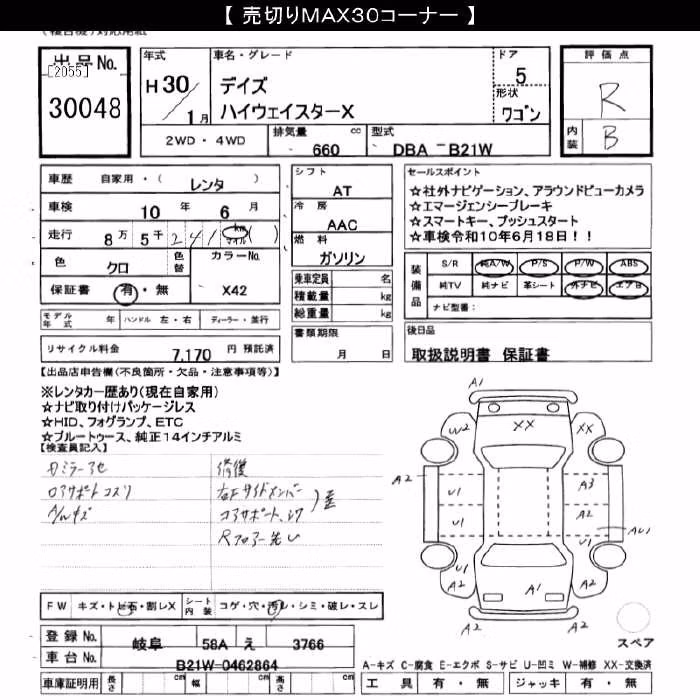 【 売切りMAX30コーナー 】
出品No.
[2055]
30048
年式
H30/1月
車名・グレード
デイズ
ハイウェイスターX
ドア
5
形状
ワゴン
評価点
R
内装
B
2WD・4WD
排気量 660 cc
型式 DBA-B21W
車歴 自家用・( レンタ )
車検 10年 6月
走行 8万 5千 241 km マイル ( )
色 クロ
色替
カラーNo.
X42
保証書 有・無
シフト
AT
冷房
AAC
燃料
ガソリン
乗車定員 名
積載量 kg
総重量 kg
セールスポイント
☆社外ナビゲーション、アラウンドビューカメラ
☆エマージェンシーブレーキ
☆スマートキー、プッシュスタート
☆車検令和10年6月18日!!
装備品
S/R 純A/W P/S P/W ABS
純TV 純ナビ 革シート 外ナビ エアB
ナビ型番:
モデル年式 年 ハンドル 左・右 ディーラー・並行
リサイクル料金 7,170 円 預託済
書類期限
月 日
後日品
取扱説明書 保証書
【出品店申告欄(不良箇所・欠品・注意事項等)】
※レンタカー歴あり(現在自家用)
☆ナビ取り付けパッケージレス
☆HID、フォグランプ、ETC
☆ブルートゥース、純正14インチアルミ
【検査員記入】
A/Wキズ
修復
右Fサイドメンバー
コアサポート
Rフロアー
A1
XX
W2
XX
A2
U1
A3
U1
A2
U1
U1
A2
A1
A2
A2
スペア
FW キズ・トビ石・割レX
シート内装 コゲ・穴・汚レ・シミ・破レ・スレ
登録No. 岐阜 58A え 3766
車台No. B21W-0462864
車庫証明用 長さ cm 幅 cm 高さ cm
A-キズ C-腐食 E-エクボ S-サビ U-凹ミ W-補修 XX-交換済
工具 有・無 ジャッキ 有・無